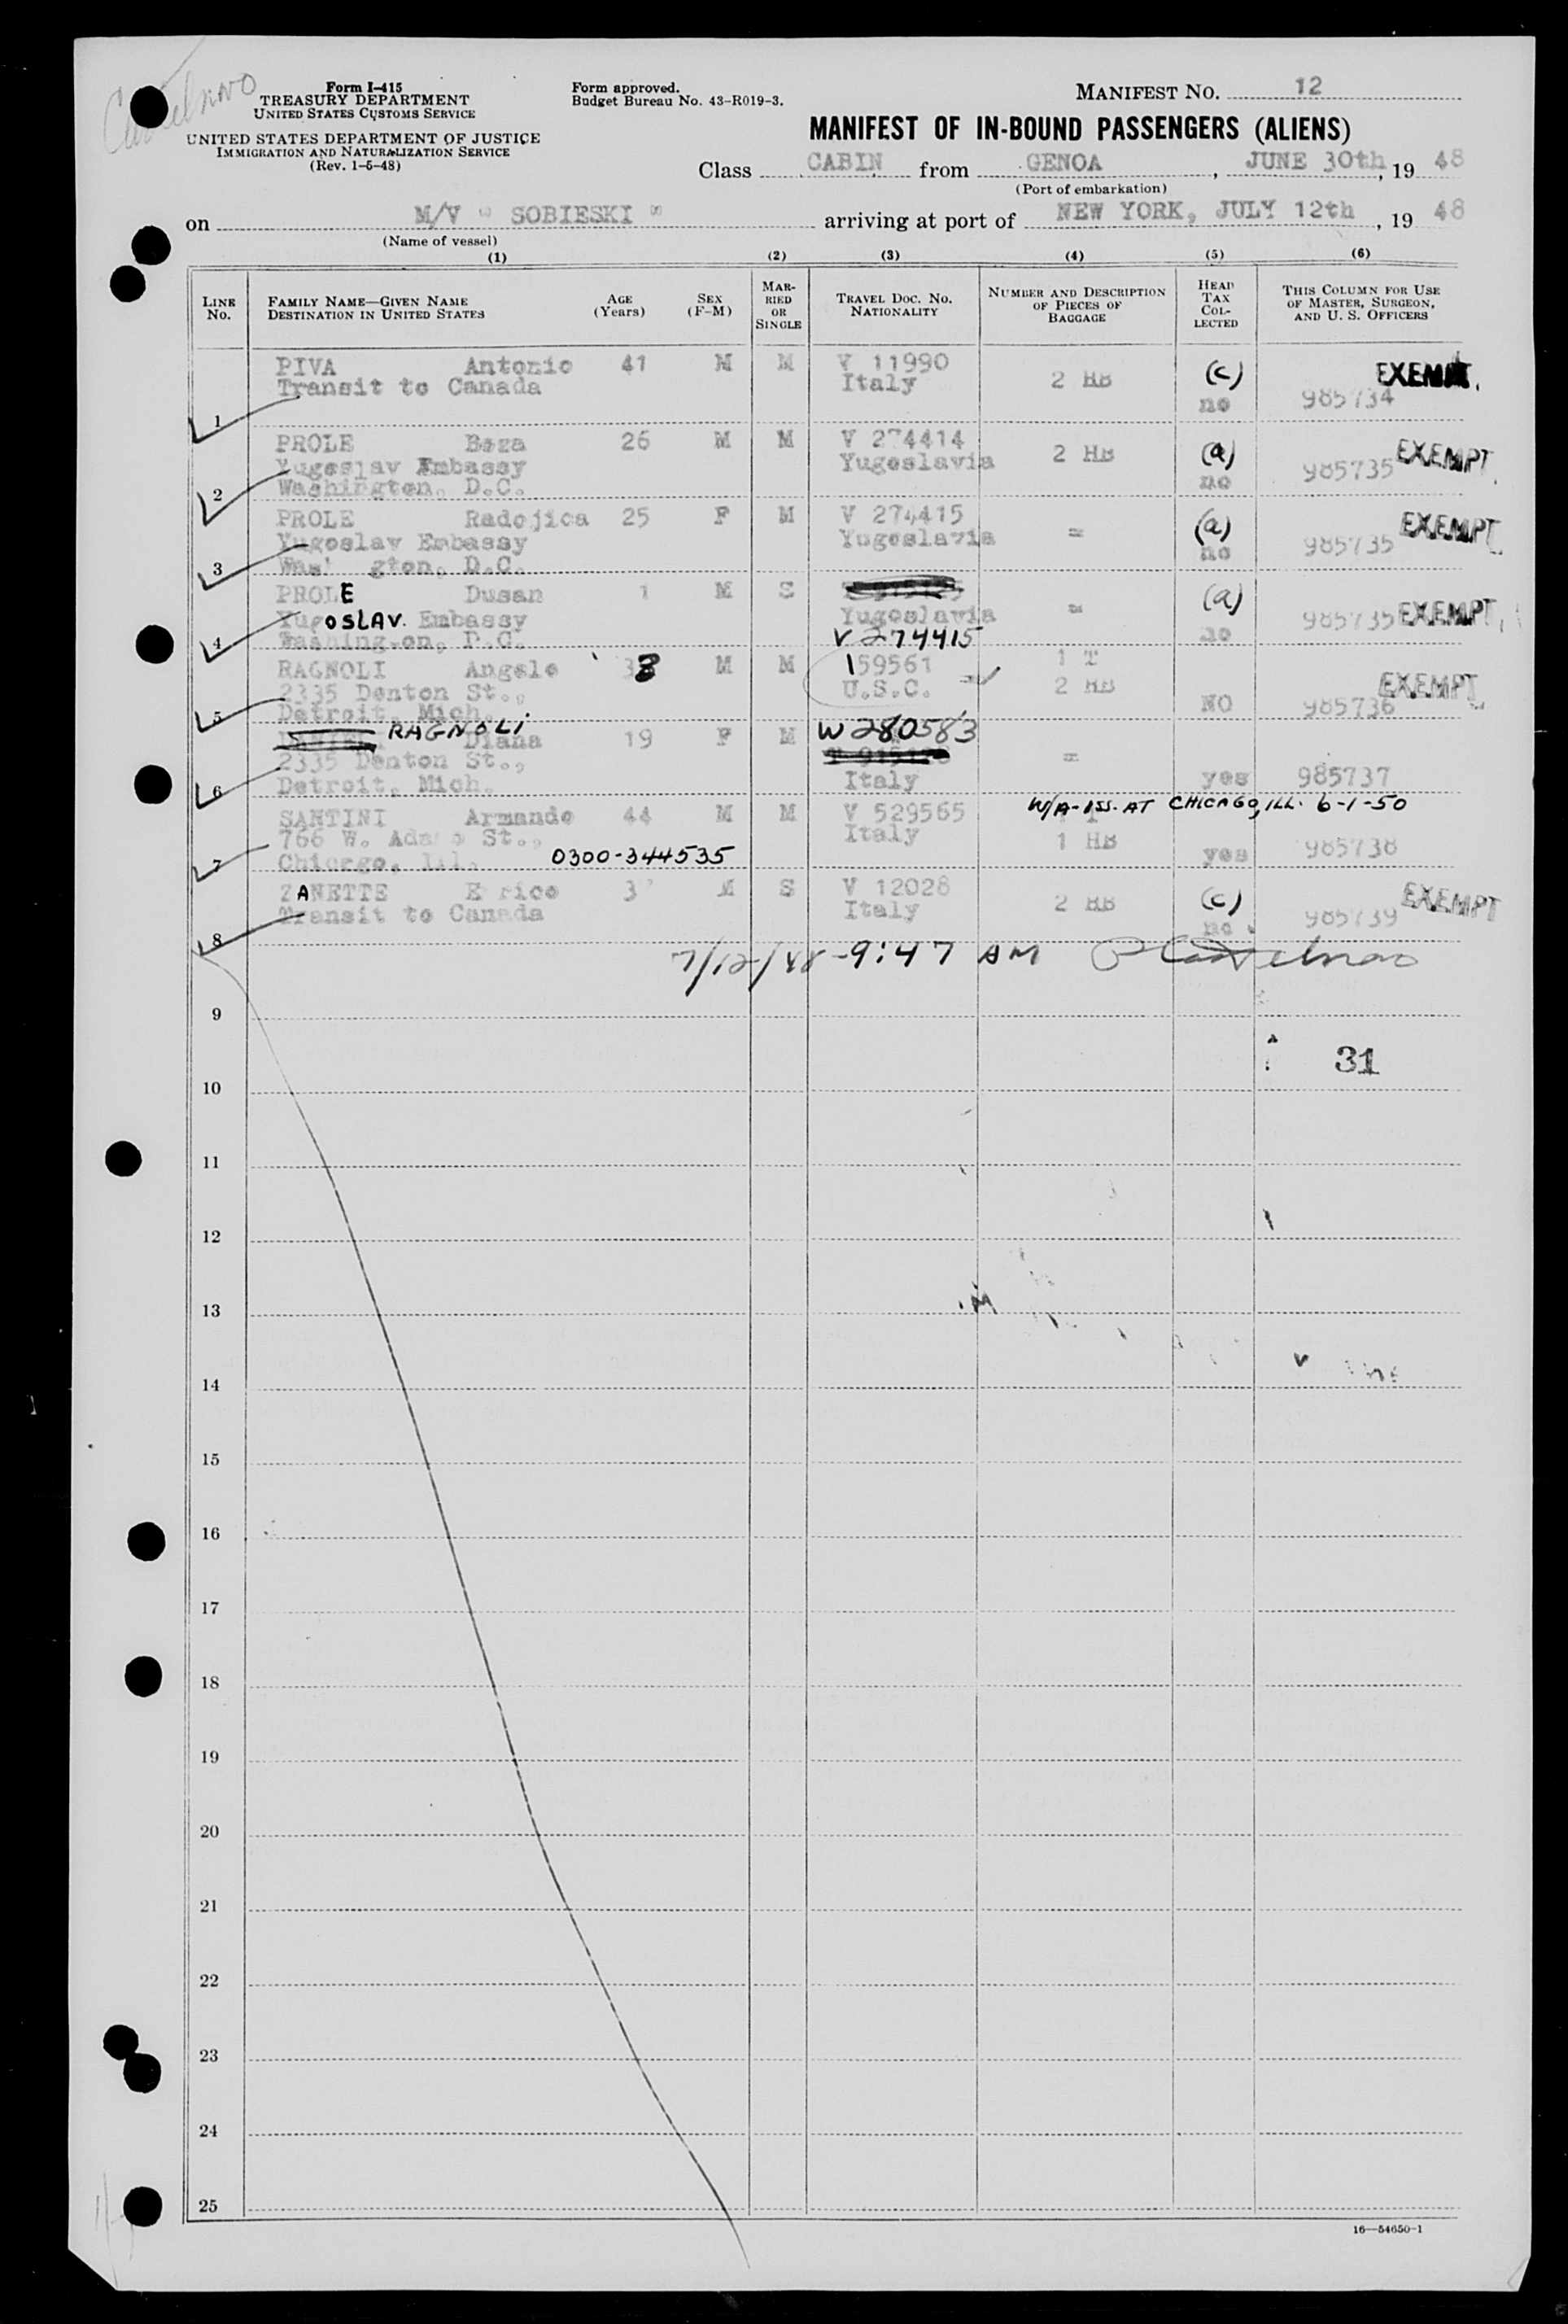 Form I-415
TREASURY DEPARTMENT
UNITED STATES CUSTOMS SERVICE
UNITED STATES DEPARTMENT OF JUSTICE
IMMIGRATION AND NATURALIZATION SERVICE
(Rev. 1-5-48)
Form approved.
Budget Bureau No. 43-R019-3.
MANIFEST NO. 12
MANIFEST OF IN-BOUND PASSENGERS (ALIENS)
Class CABIN from GENOA, JUNE 30th, 19 48
(Port of embarkation)
on M/V " SOBIESKI " arriving at port of NEW YORK, JULY 12th, 19 48
(Name of vessel)
(1) (2) (3) (4) (5) (6)
LINE No. FAMILY NAME—GIVEN NAME DESTINATION IN UNITED STATES AGE (Years) SEX (F-M) MARRIED OR SINGLE TRAVEL DOC. NO. NATIONALITY NUMBER AND DESCRIPTION OF PIECES OF BAGGAGE HEAD TAX COLLECTED THIS COLUMN FOR USE OF MASTER, SURGEON, AND U. S. OFFICERS
PIVA Antonio 41 M M V 11990 EXEMPT.
Transit to Canada Italy 2 HB (c)
1 no 985734
PROLE Boza 26 M M V 274414 EXEMPT.
Yugoslav Embassy Yugoslavia 2 HB (a) 985735
2 Washington, D.C. no
PROLE Radojica 25 F M V 274415 EXEMPT
Yugoslav Embassy Yugoslavia = (a) 985735
3 gton, D.C. no
PROLE Dusan 1 M S (a)
YugOSLAV. Embassy Yugoslavia = 985735 EXEMPT.
4 Washing on, D.C. V 274415 no
RAGNOLI Angelo 38 M M 159561 1 T
2335 Denton St., U.S.C. 2 HB EXEMPT
5 Detroit, Mich. NO 985736
RAGNOLI Diana 19 F M W 280583
2335 Denton St., =
6 Detroit, Mich. Italy yes 985737
W/A-ISS. AT CHICAGO, ILL. 6-1-50
SANTINI Armando 44 M M V 529565 1 T
766 W. Ada St., Italy 1 HB 985738
7 Chicago, Ill. 0300-344535 yes
ZANETTE E rico 3 M S V 12028 EXEMPT
Transit to Canada Italy 2 HB (c) 985739
8 no
7/12/48-9:47 AM
9
31
10
11
12
13
14
15
16
17
18
19
20
21
22
23
24
25
16—54650-1